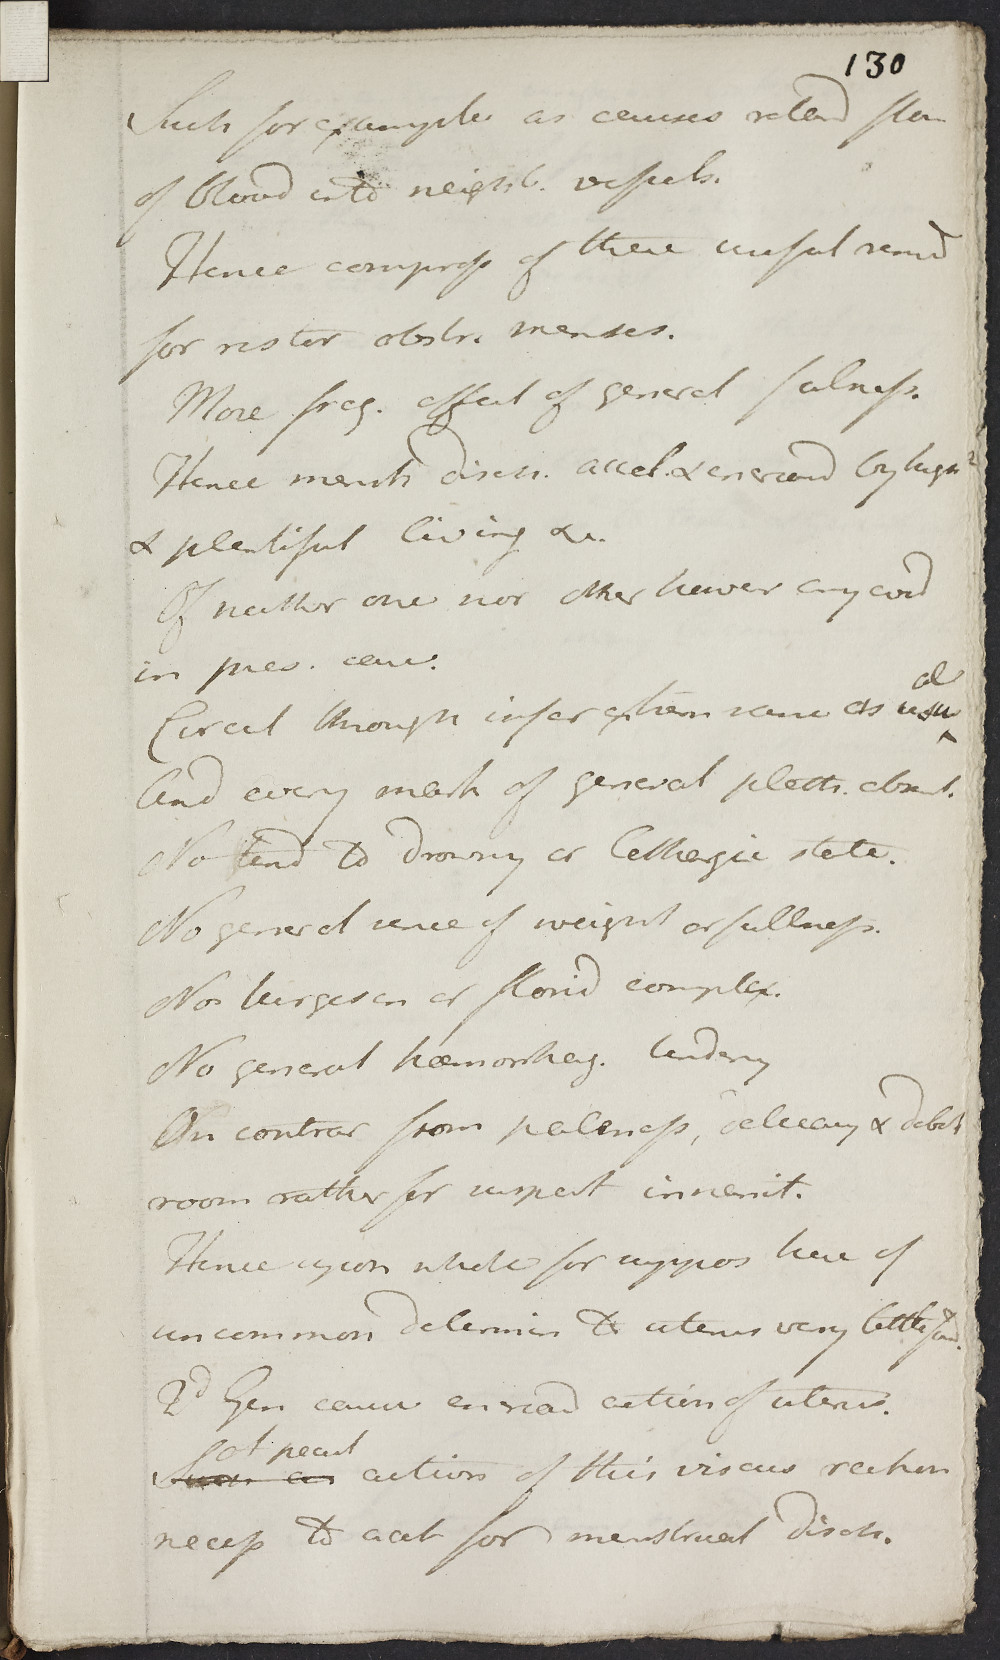 130
Such for example as causes retard flow
of blood into neighb. vessels.
Hence compress of these useful remed
for restor obstr. menses.
More freq. effect of general fulness.
Hence menst disch. accel. & encreasd by high
& plentiful living &c.
Of neither one nor other however any evid
in pres. case.
Circul through infer extrem same as usual
And every mark of general pleth. absent.
No tend to drowsy or lethargic state.
No general sense of weight or fullness.
No turgescen or florid complex.
No general hæmorrhag. tendency
On contrar from paleness, delicacy & debilit
room rather for suspect
Hence upon whole for suppos here of
uncommon determin to uterus very little found.
2d Gen cause encreasd action of uterus.
action of this viscus reckon
necess to acct for menstrual disch.